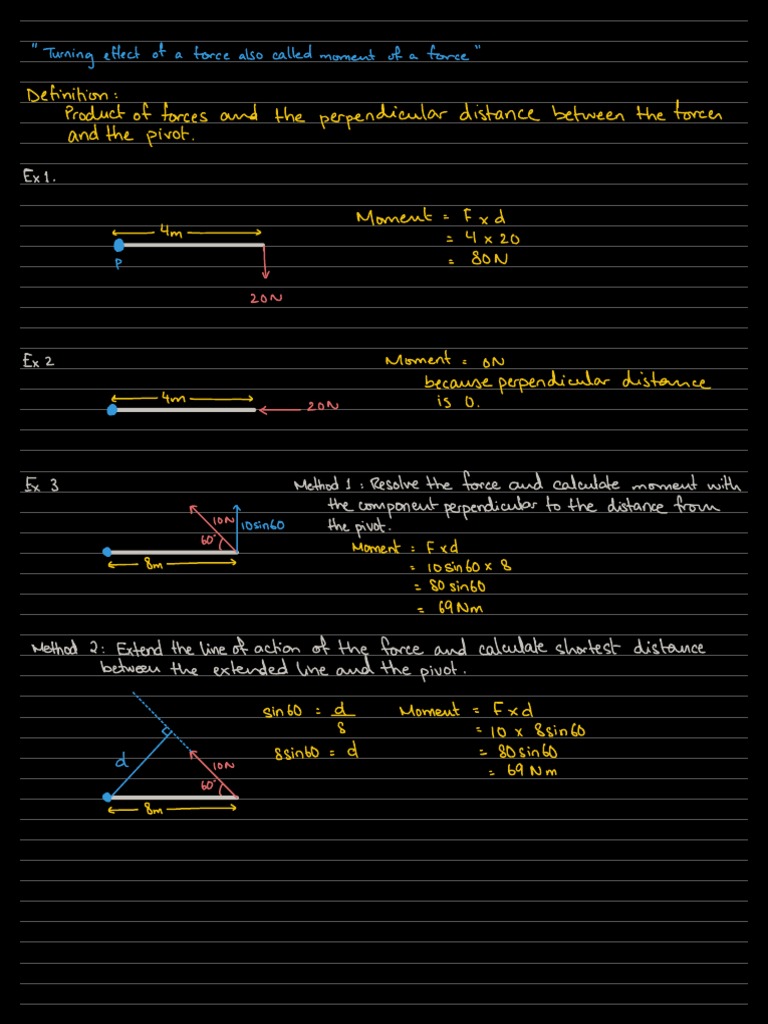 "Turning effect of a force also called moment of a force"
Definition:
Product of forces and the perpendicular distance between the forces
and the pivot.
Ex 1.
4m
P
20N
Moment = F x d
= 4 x 20
= 80N
Ex 2
4m
20N
Moment = 0N
because perpendicular distance
is 0.
Ex 3
10N
10sin60
60°
8m
Method 1: Resolve the force and calculate moment with
the component perpendicular to the distance from
the pivot.
Moment = F x d
= 10sin60 x 8
= 80sin60
= 69Nm
Method 2: Extend the line of action of the force and calculate shortest distance
between the extended line and the pivot.
d
10N
60°
8m
sin60 = d
8
8sin60 = d
Moment = F x d
= 10 x 8sin60
= 80sin60
= 69Nm